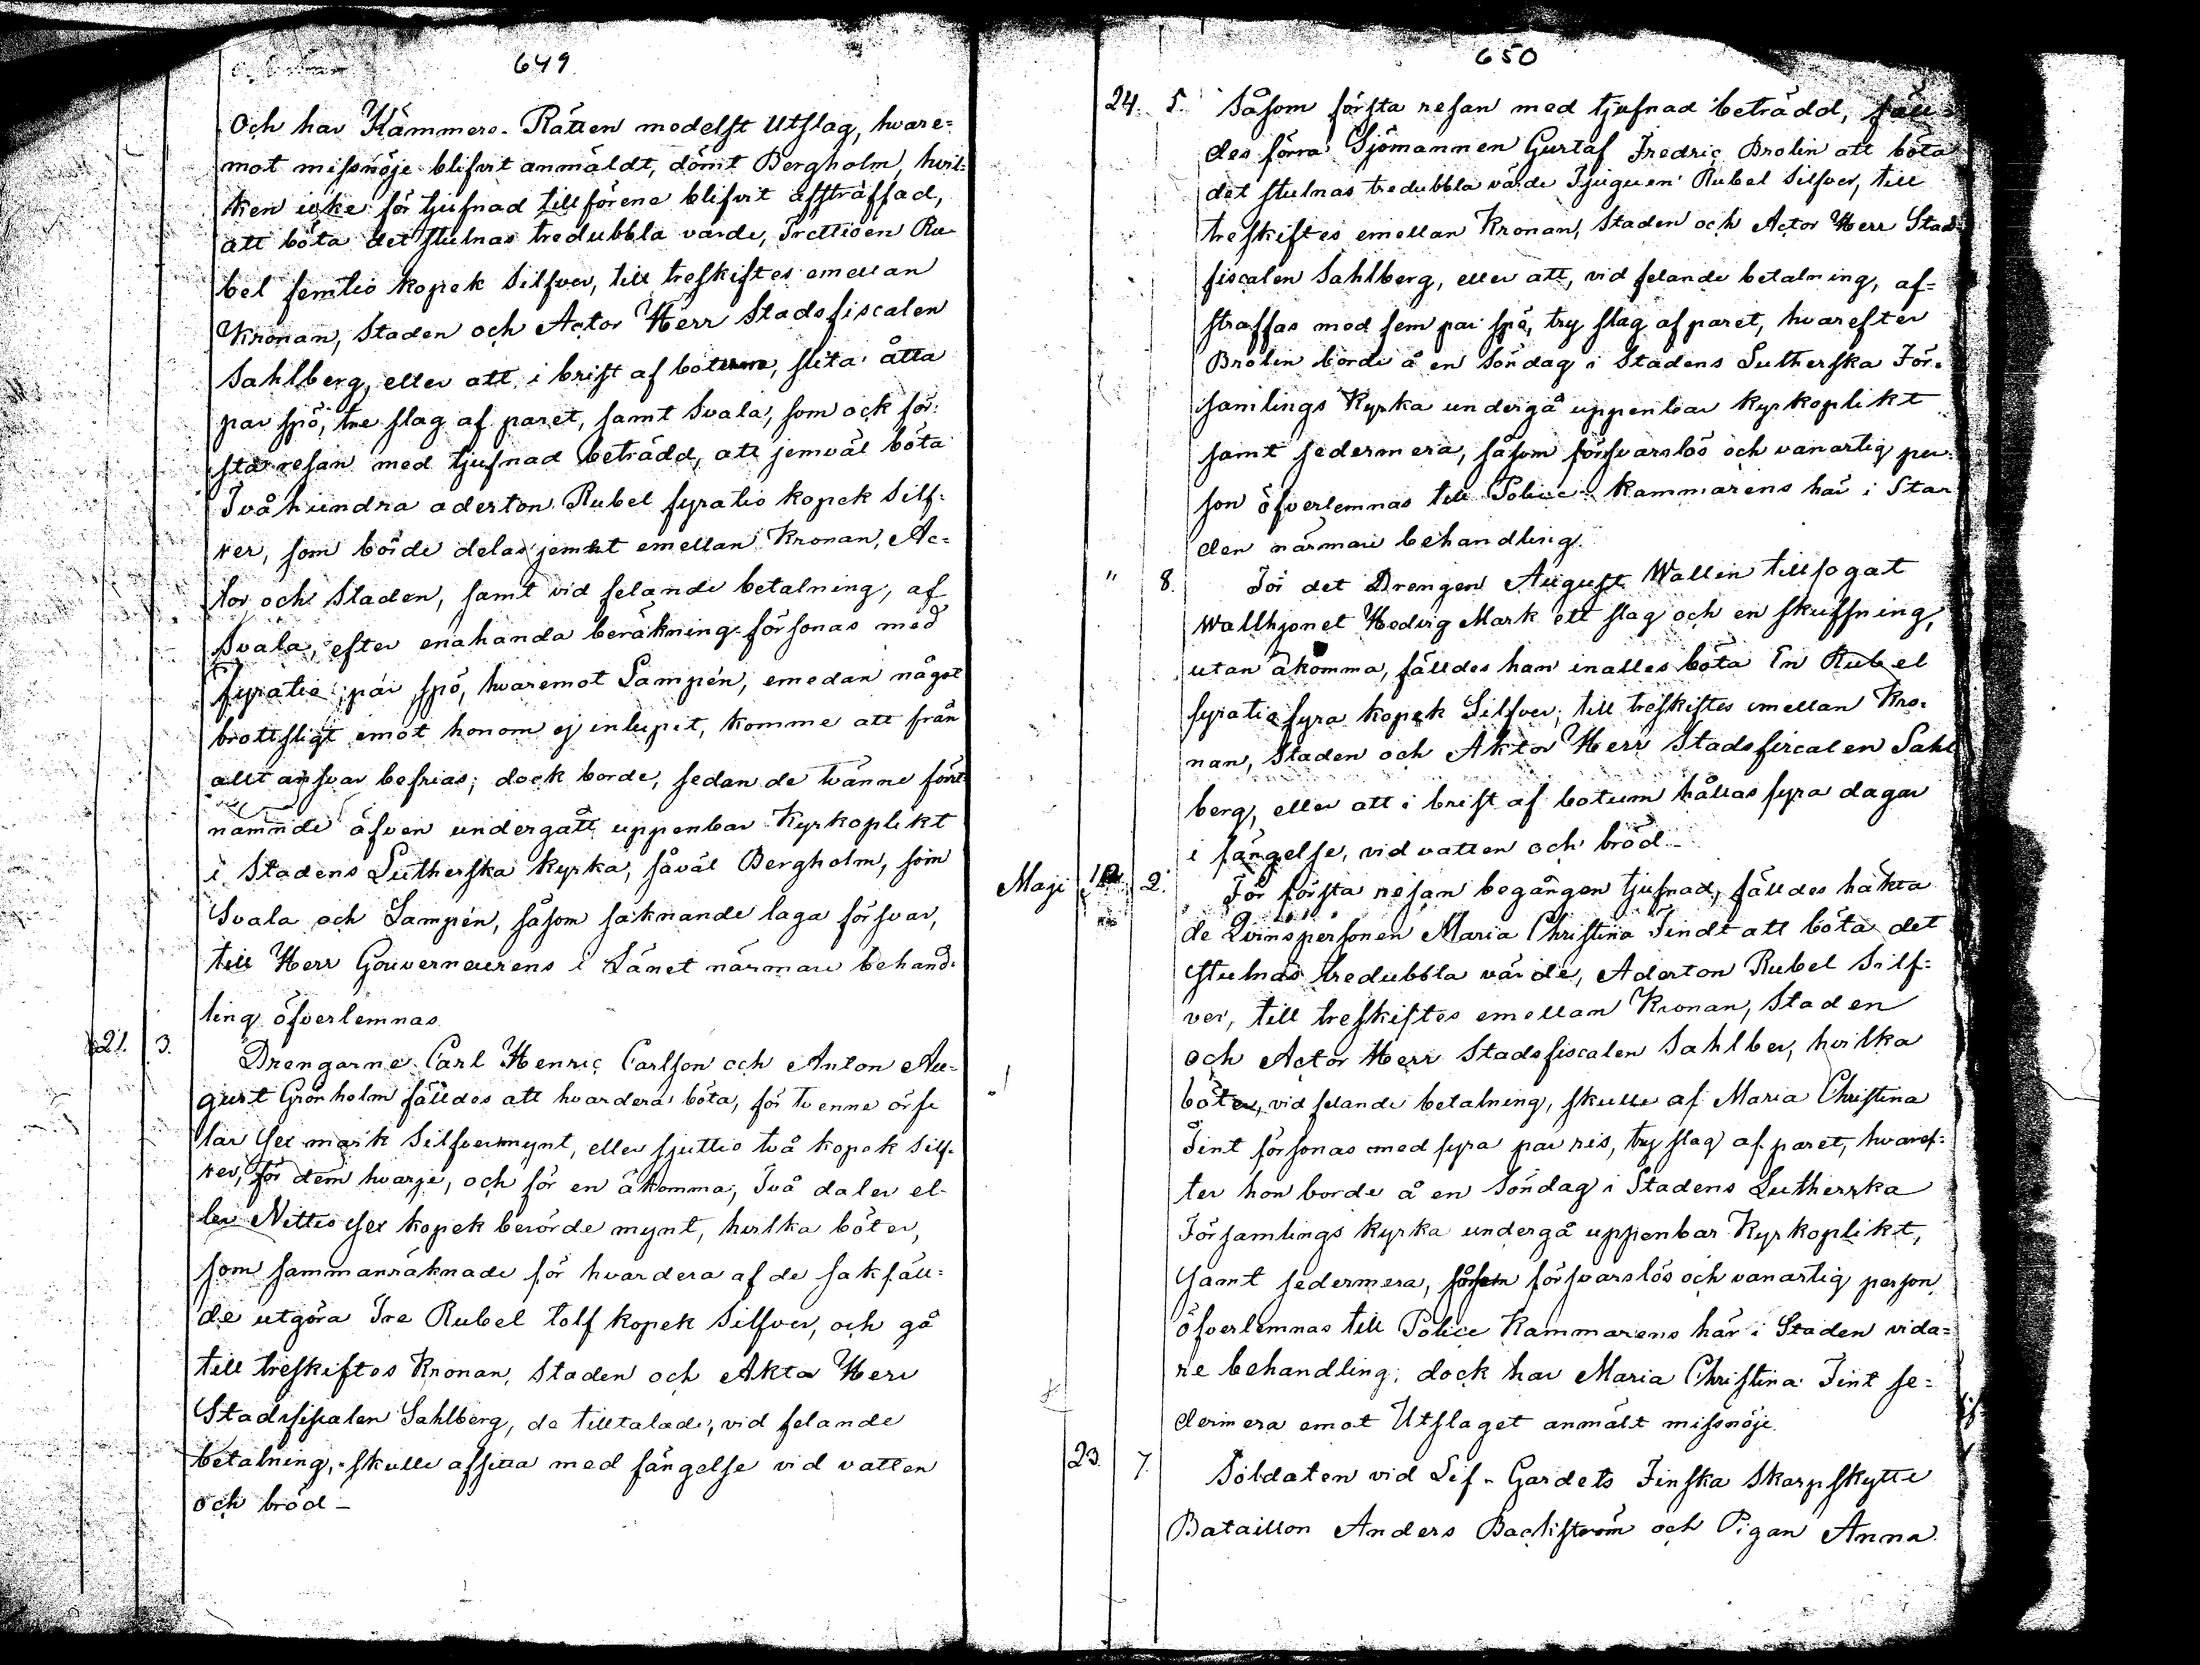 649
Och har Kämners-Rätten medelst Utslag, hvare-
mot missnöje blifvit anmäldt, dömt Bergholm, hvil-
ken icke för tjufnad tillförene blifvit afstraffad,
att böta det stulnas tredubbla värde, Trettioen Ru-
bel femtio kopek Silfver, till treskiftes emellan
Kronan, Staden och Actor Herr Stadsfiscalen
Sahlberg, eller att, i brist af böterne, slita åtta
par spö, tre slag af paret, samt Svala, som ock för-
sta resan med tjufnad beträdd, att jemväl böta
Tvåhundra aderton Rubel fyratio kopek Silf-
ver, som börde delas jemnt emellan Kronan, Ac-
tor och Staden, samt vid felande betalning, af
Svala, efter enahanda beräkning försonas med
fyratio par spö, hvaremot Lampén, emedan något
brottsligt emot honom ej inlupit, komme att från
allt ansvar befrias; dock borde, sedan de tvänne först
nämnde äfven undergått uppenbar Kyrkoplikt
i Stadens Lutherska Kyrka, såväl Bergholm, som
Svala och Lampén, såsom saknande laga försvar,
till Herr Gouverneurens i Länet närmare behand-
ling öfverlemnas.
21. 3. Drengarne Carl Henric Carlson och Anton Au-
gust Grönholm fälldes att hvardera böta, för tvenne örfi
lar Sex mark Silfvermynt, eller sjuttio två kopek Silf-
ver, för dem hvarje, och för en åkomma, Två daler el-
ler Nittiosex kopek berörde mynt, hvilka böter,
som sammanräknade för hvardera af de sakfäll-
de utgöra Tre Rubel tolf kopek Silfver, och gå
till treskiftes Kronan, Staden och Aktor Herr
Stadsfiscalen Sahlberg, de tilltalade, vid felande
betalning, skulle afsitta med fängelse vid vatten
och bröd –
650
24. 5. Såsom första resan med tjufnad beträdd, fäll-
des förra Sjömannen Gustaf Fredric Brolin att böta
det stulnas tredubbla värde Tjuguen Rubel Silfver, till
treskiftes emellan Kronan, Staden och Actor Herr Stads
fiscalen Sahlberg, eller att, vid felande betalning, af-
straffas med fem par spö, try slag af paret, hvarefter
Brolin borde å en Söndag i Stadens Lutherska För-
samlings Kyrka undergå uppenbar Kyrkoplikt
samt sedermera, såsom försvarslös och vanartig per-
son öfverlemnas till Police-Kammarens här i Sta-
den närmare behandling.
" 8. För det Drengen August Wallin tillfogat
Wallhjonet Hedvig Mark ett slag och en skuffning,
utan åkomma, fälldes han inalles böta En Rubel
fyratiofyra kopek Silfver, till treskiftes emellan Kro-
nan, Staden och Aktor Herr Stadsfiscalen Sahl
berg, eller att i brist af botum hållas fyra dagar
i fängelse, vid vatten och bröd –
Maji 2. För första resan begången tjufnad, fälldes häkta
de Qvinspersonen Maria Christina Tindt att böta det
stulnas tredubbla värde, Aderton Rubel Silf-
ver, till treskiftes emellan Kronan, Staden
och Actor Herr Stadsfiscalen Sahlber, hvilka
böter, vid felande betalning, skulle af Maria Christina
Tint försonas med fyra par ris, try slag af paret, hvaref-
ter hon borde å en Söndag i Stadens Lutherska
Församlings Kyrka undergå uppenbar Kyrkoplikt,
samt sedermera, såsom försvarslös och vanartig person
öfverlemnas till Police Kammarens här i Staden vida-
re behandling; dock har Maria Christina Tint se-
dermera emot Utslaget anmält missnöje.
23. 7. Soldaten vid Lif-Gardets Finska Skarpskytte
Bataillon Anders Backström och Pigan Anna